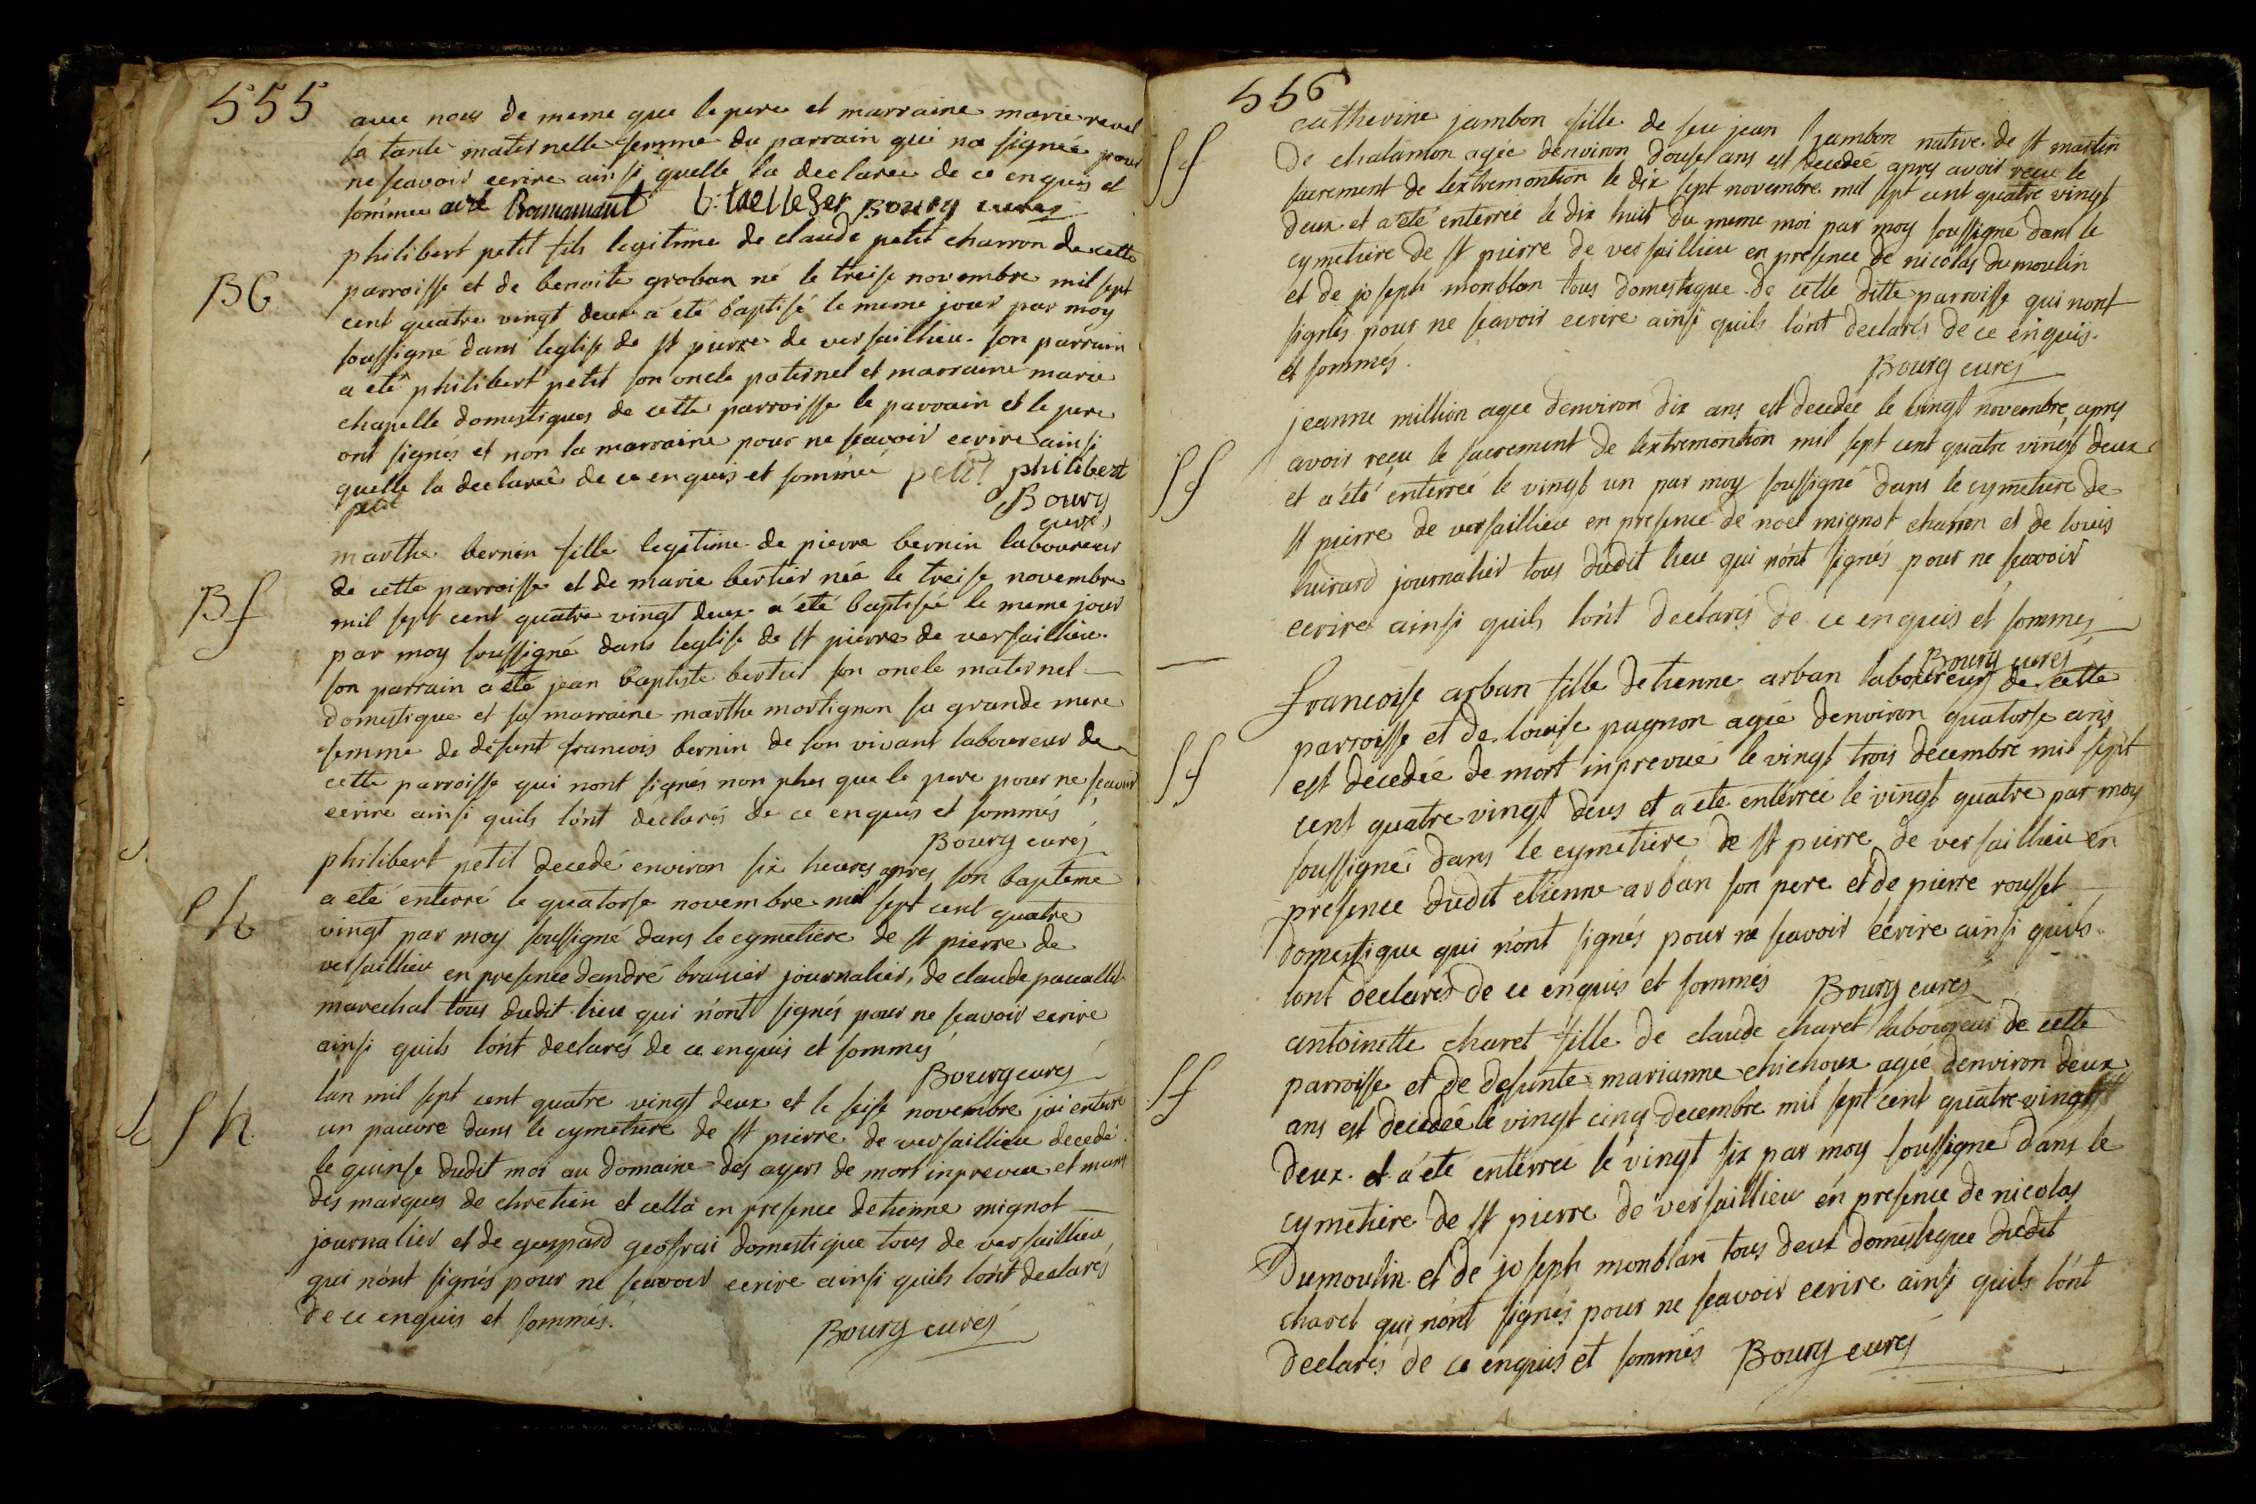 555
avec nous de meme que le pere et marraine marie revel
sa tante maternelle femme du parrain qui na signée pour
ne scavoir ecrire ainsi quelle la declarée de ce enquis et
sommée Bourg curés
philibert petit fils legitime de claude petit charron de cette
BG
parroisse et de benoite groban né le treise novembre mil sept
cent quatre vingt deux a été baptisé le meme jour par moy
soussigné dans leglise de st pierre de versaillieu. son parrain
a eté philibert petit son oncle paternel et marraine marie
chapelle domestiques de cette parroisse le parrain et le pere
ont signés et non la marraine pour ne scavoir ecrire ainsi
quelle la declarée de ce enquis et sommée petit philibert
petit Bourg
curés
marthe bernin fille legitime de pierre bernin laboureur
Bf
de cette parroisse et de marie bertier née le treise novembre
mil sept cent quatre vingt deux a été baptisée le meme jour
par moy soussigné dans leglise de st pierre de versaillieu.
son parrain a eté jean baptiste bertier son oncle maternel
domestique et sa marraine marthe mortignon sa grande mere
femme de defunt francois bernin de son vivant laboureur de
cette parroisse qui nont signés non plus que le pere pour ne scavoir
ecrire ainsi quils lónt déclarés de ce enquis et sommés
Bourg curés
philibert petit decedé environ six heures apres son bapteme
Sh
a eté enterré le quatorse novembre mil sept cent quatre
vingt par moy soussigné dans le cymetiere de st pierre de
versaillieu en presence dandré brasier journalier, de claude
marechal tous dudit lieu qui nónt signés pour ne scavoir ecrire
ainsi quils lónt declarés de ce enquis et sommés
Bourg curés
lan mil sept cent quatre vingt deux et le seise novembre jai enterré
Sh
un pauvre dans le cymetiere de st pierre de versaillieu decedé
le quinse dudit moi au domaine des ayers de mort inprevue et muni
des marques de chretien et cella en presence detienne mignot
journalier et de gaspard geofrai domestique tous de versaillieu
qui nónt signés pour ne scavoir ecrire ainsi quils lónt declarés
de ce enquis et sommés.
Bourg curés
556
catherine jambon fille de feu jean jambon native de st martin
Sf
De chalamon agée denviron douse ans est decedée apres avoir reçue le
sacrement de lextremontion le dix sept novembre mil sept cent quatre vingt
deux et a eté enterrée le dix huit du meme moi par moy soussigné dans le
cymetiere de st pierre de versaillieu en presence de nicolas dumoulin
et de joseph monblan tous domestique de cette ditte parroisse qui nont
signés pour ne scavoir ecrire ainsi quils lónt declarés de ce enquis
et sommés.
Bourg curés
jeanne million agée denviron dix ans est decedée le vingt novembre apres
Sf
avoir reçu le sacrement de lextremontion mil sept cent quatre vingt deux
et a été enterrée le vingt un par moy soussigné dans le cymetiere de
st pierre de versaillieu en presence de noel mignot charron et de louis
hurard journalier tous dudit lieu qui nónt signés pour ne scavoir
ecrire ainsi quils lont declarés de ce enquis et sommés
Bourg curés
francoise arban fille detienne arban laboureur de cette
Sf
parroisse et de louise pagnon agée denviron quatorse ans
est decedée de mort inprevue le vingt trois decembre mil sept
cent quatre vingt deus et a eté enterrée le vingt quatre par moy
soussigné dans le cymetiere de st pierre de versaillieu en
presence dudit etienne arban son pere et de pierre rousset
domestique qui nónt signés pour ne scavoir écrire ainsi quils
lont declarés de ce enquis et sommés Bourg curés
antoinette charet fille de claude charet laboureur de cette
Sf
parroisse et de defunte marianne chichoux agée denviron deux
ans est decedée le vingt cinq decembre mil sept cent quatre vingt
deux et a été enterrée le vingt six par moy soussigné dans le
cymetiere de st pierre de versaillieu en presence de nicolas
Dumoulin et de joseph monblan tous deux domestique dudit
charet qui nónt signés pour ne scavoir ecrire ainsi quils lónt
declarés de ce enquis et sommés Bourg curés